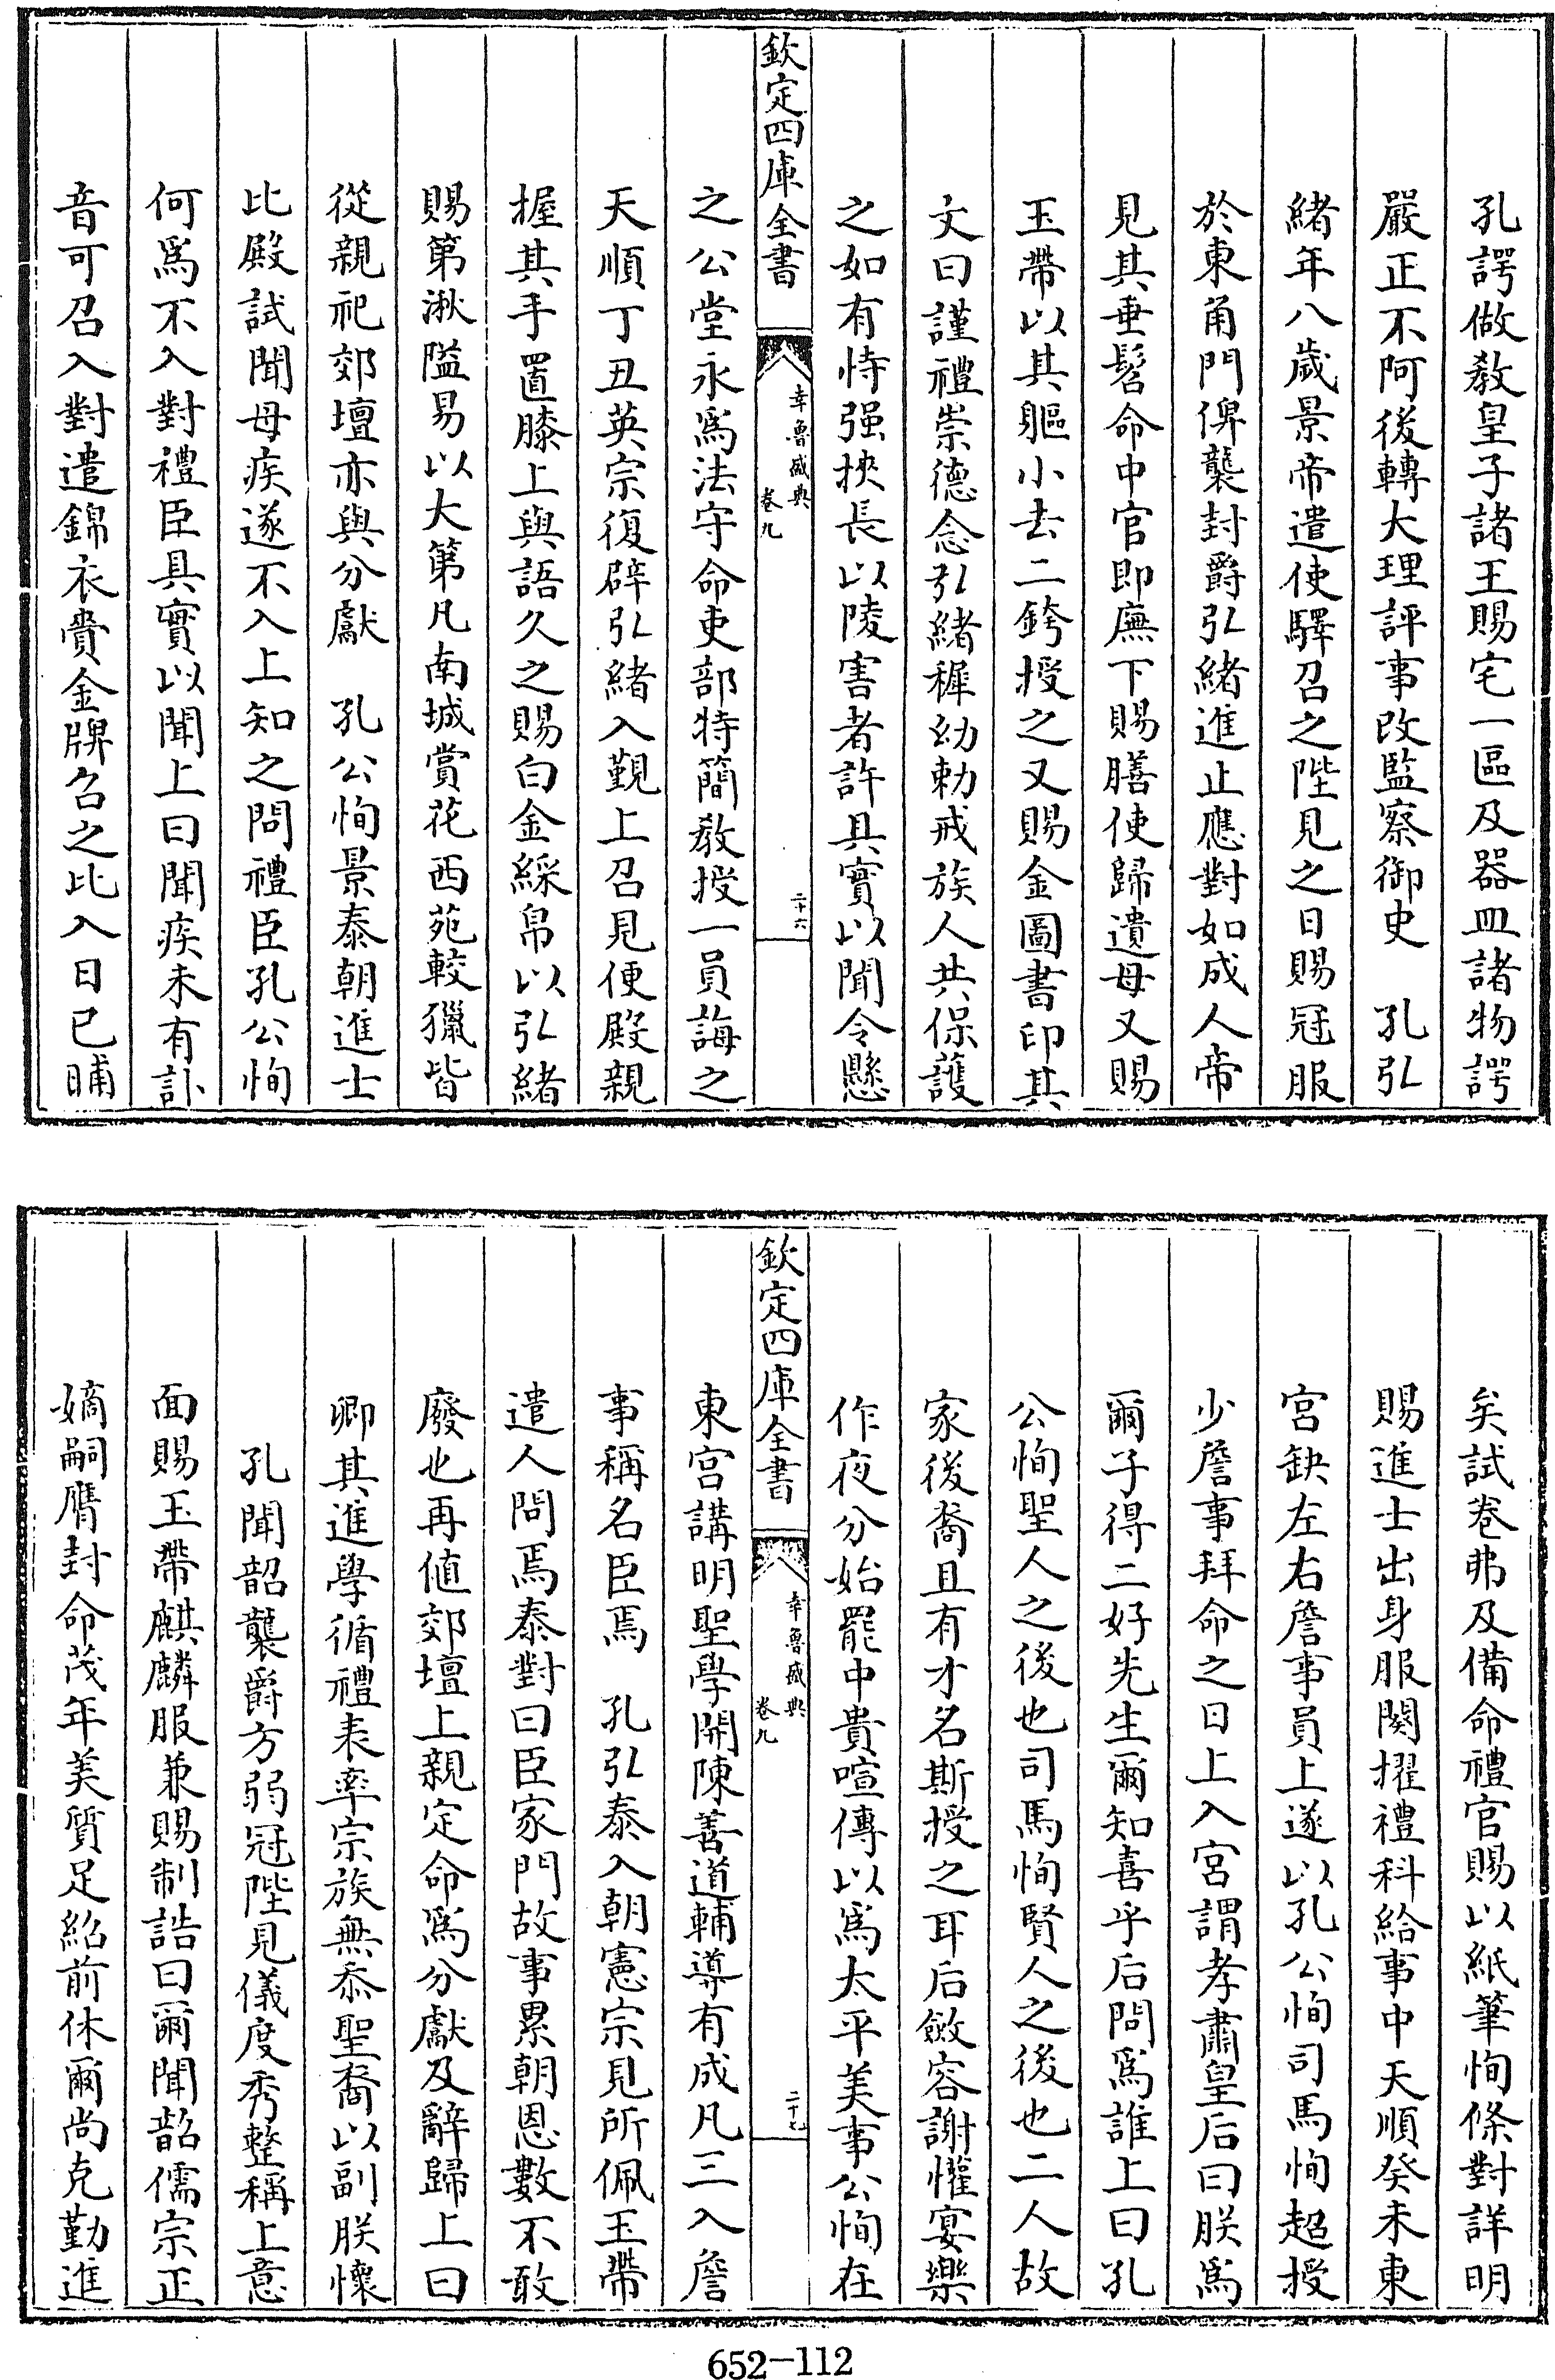 孔諤做教皇子諸王賜宅一區及器皿諸物諤
嚴正不阿後轉大理評事改監察御史　孔弘
緒年八歲景帝遣使驛召之陛見之日賜冠服
於東角門俾襲封爵弘緒進止應對如成人帝
見其垂髫命中官即廡下賜膳使歸遺母又賜
玉帶以其軀小去二銙授之又賜金圖書印其
文曰謹禮崇德念弘緒穉幼勅戒族人共保護
之如有恃强挾長以陵害者許具實以聞令懸
欽定四庫全書
幸魯盛典
卷九
二十六
之公堂永爲法守命吏部特簡教授一員誨之
天順丁丑英宗復辟弘緒入覲上召見便殿親
握其手置膝上與語久之賜白金綵帛以弘緒
賜第湫隘易以大第凡南城賞花西苑較獵皆
從親祀郊壇亦與分獻　孔公恂景泰朝進士
比殿試聞母疾遂不入上知之問禮臣孔公恂
何爲不入對禮臣具實以聞上曰聞疾未有訃
音可召入對遣錦衣賫金牌召之比入日已晡
矣試卷弗及備命禮官賜以紙筆恂條對詳明
賜進士出身服闋擢禮科給事中天順癸未東
宮缺左右詹事員上遂以孔公恂司馬恂超授
少詹事拜命之日上入宮謂孝肅皇后曰朕爲
爾子得二好先生爾知喜乎后問爲誰上曰孔
公恂聖人之後也司馬恂賢人之後也二人故
家後裔且有才名斯授之耳后斂容謝懽宴樂
作夜分始罷中貴喧傳以爲太平美事公恂在
欽定四庫全書
幸魯盛典
卷九
二十七
東宮講明聖學開陳善道輔導有成凡三入詹
事稱名臣焉　孔弘泰入朝憲宗見所佩玉帶
遣人問焉泰對曰臣家門故事累朝恩數不敢
廢也再値郊壇上親定命爲分獻及辭歸上曰
卿其進學循禮表率宗族無忝聖裔以副朕懷
孔聞韶襲爵方弱冠陛見儀度秀整稱上意
面賜玉帶麒麟服兼賜制誥曰爾聞韶儒宗正
嫡嗣膺封命茂年美質足紹前休爾尚克勤進
652-112